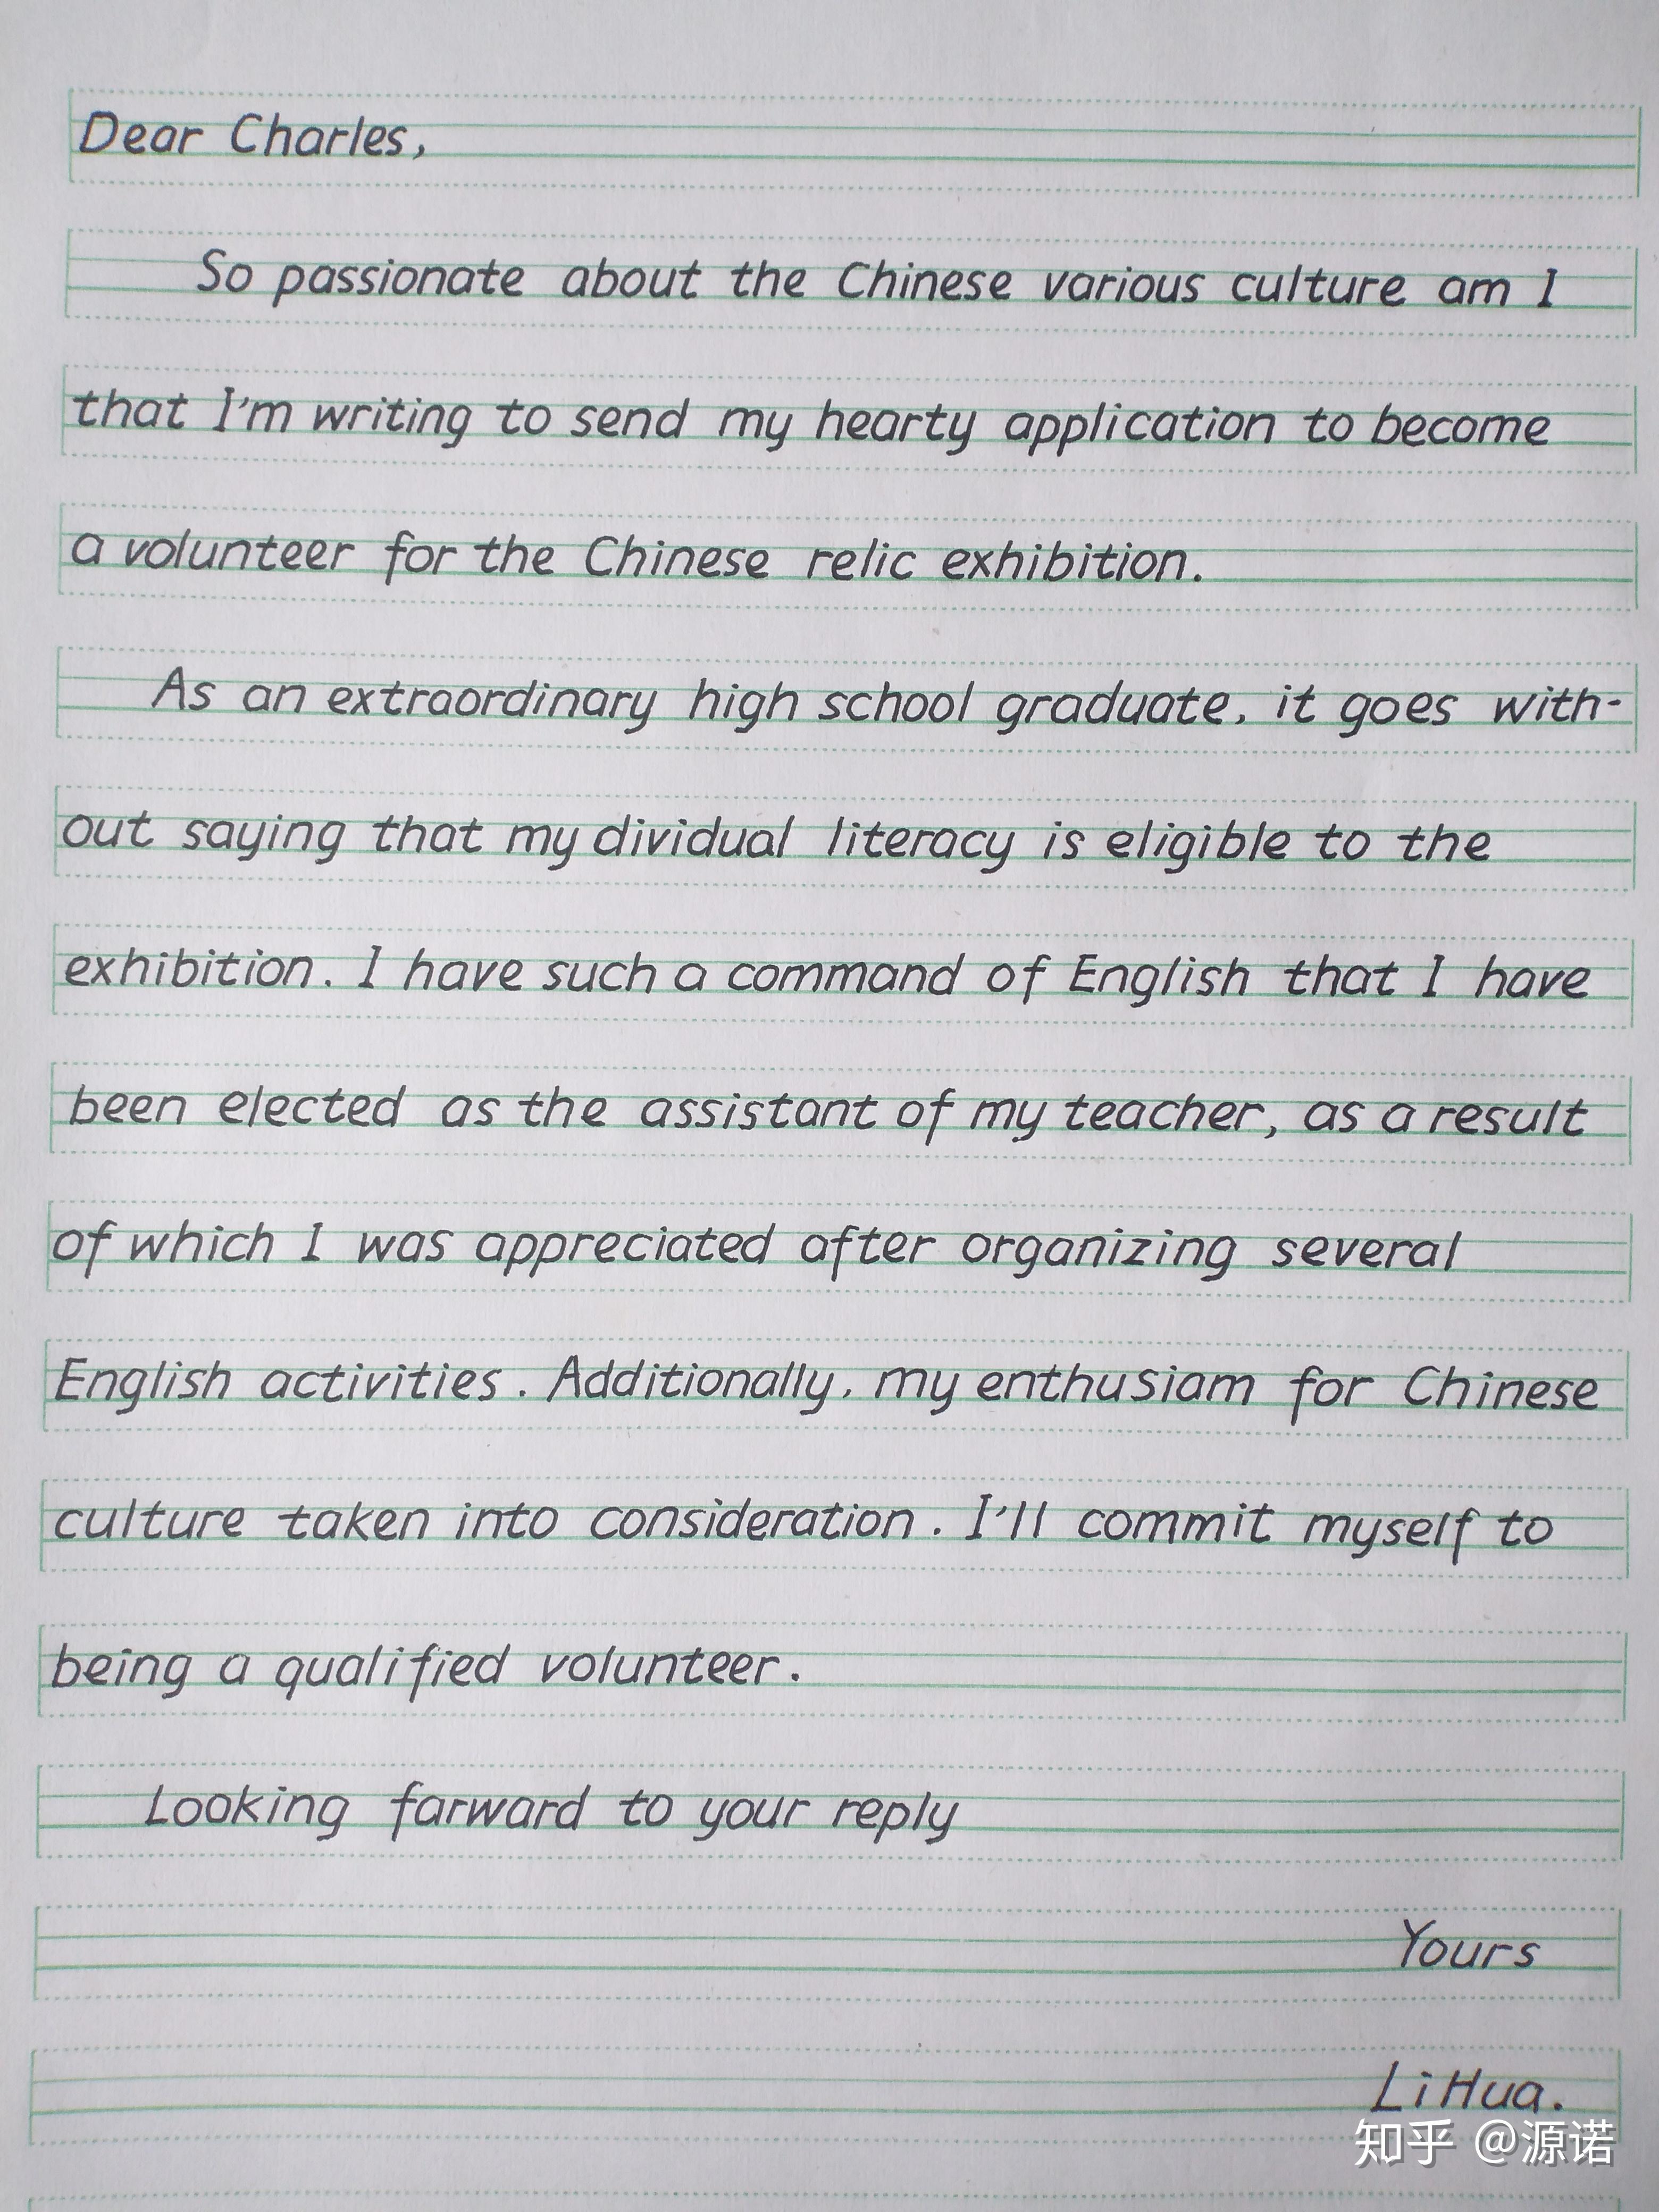 Dear Charles,
So passionate about the Chinese various culture am I
that I'm writing to send my hearty application to become
a volunteer for the Chinese relic exhibition.
As an extraordinary high school graduate, it goes with-
out saying that my dividual literacy is eligible to the
exhibition. I have such a command of English that I have
been elected as the assistant of my teacher, as a result
of which I was appreciated after organizing several
English activities. Additionally, my enthusiam for Chinese
culture taken into consideration. I'll commit myself to
being a qualified volunteer.
Looking farward to your reply
Yours
LiHua.
知乎 @源诺